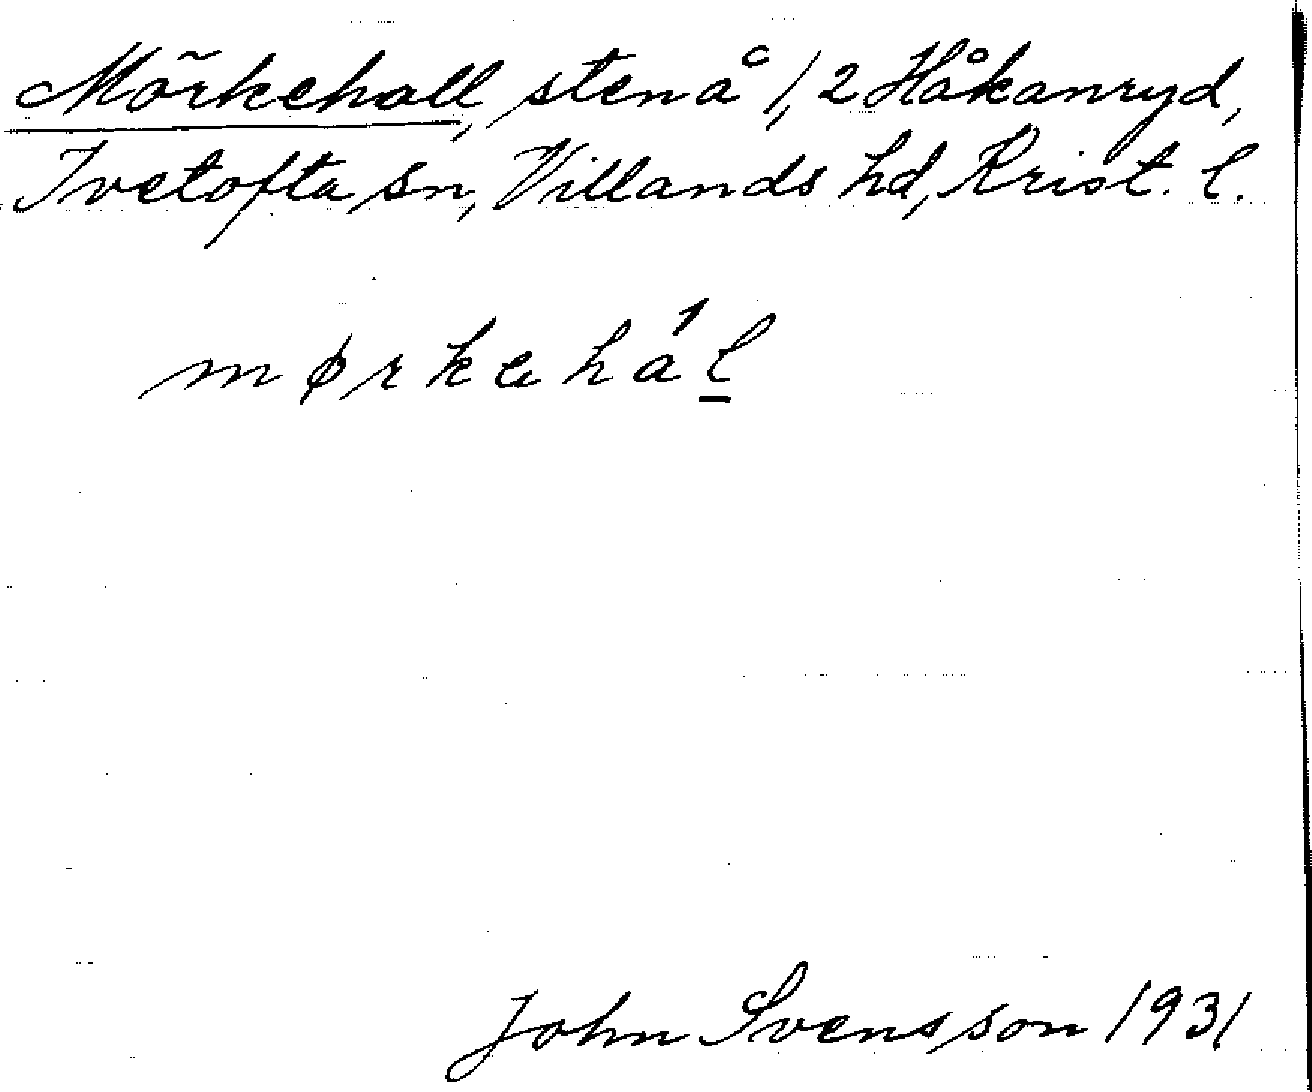 Mörkehall, sten å 1, 2 Håkanryd,
Ivetofta sn, Villands hd, Krist. l.
mørkehál
John Svensson 1931